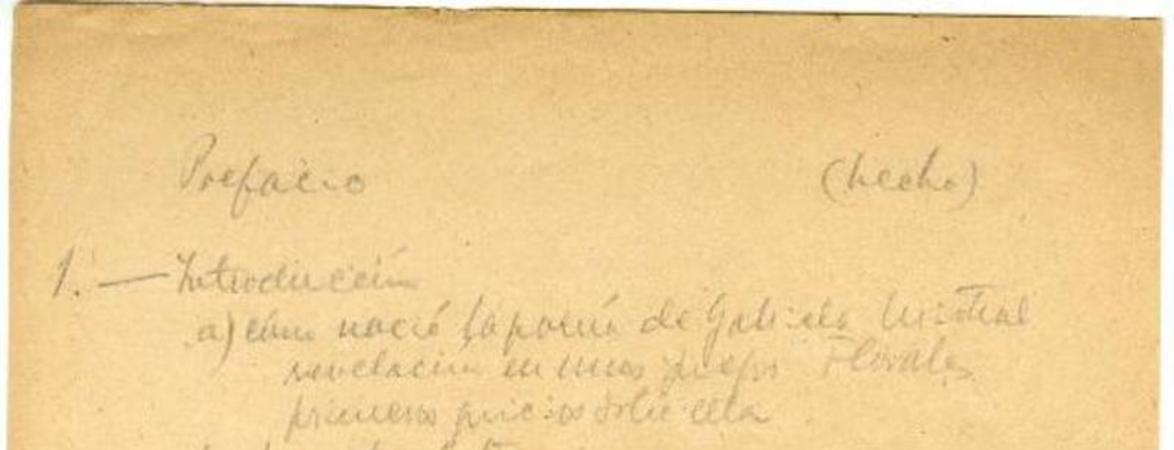 Prefacio (hecho)
1. — Introducción
a) cómo nació la poesía de Gabriela Mistral
revelación en unos juegos Florales
primeros juicios sobre ella